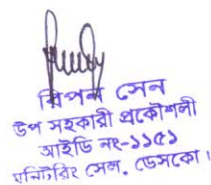 বিপন সেন
উপ সহকারী প্রকৌশলী
আইডি নং-১১৫১
মনিটরিং সেল, ডেসকো।